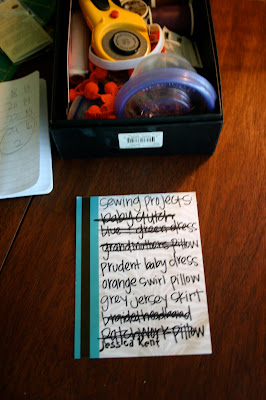 sewing projects
baby clutch
blue & green dress
grandmothers pillow
prudent baby dress
orange swirl pillow
grey jersey skirt
braided headband
patchwork pillow
Jessica Kent